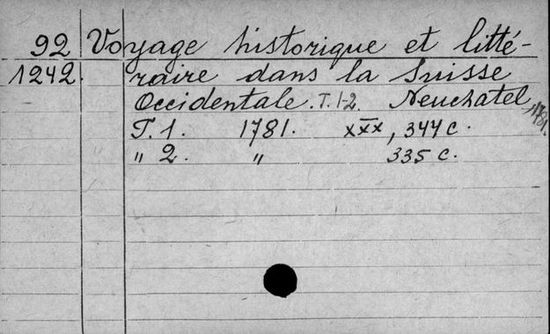 92 Voyage historique et litté-
1242. raire dans la Suisse
Occidentale. T. 1-2. Neuchatel, 1781.
T. 1. 1781. xxx, 347 c.
" 2. " 335 c.